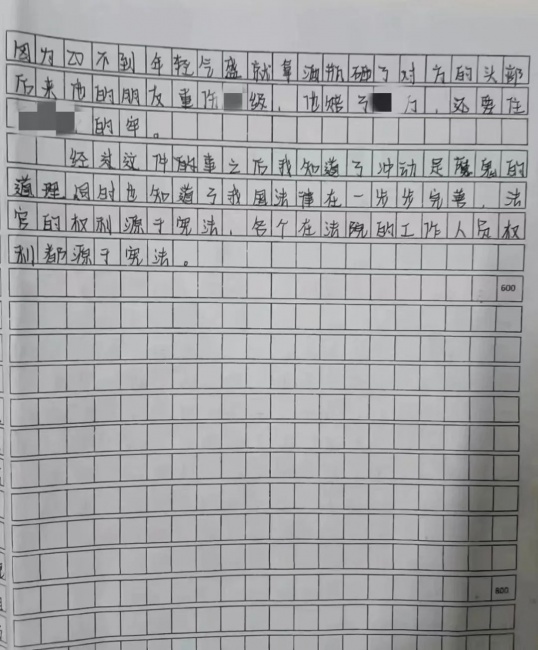 因为刀不到年轻气盛就拿酒瓶砸了对方的头部
后来他的朋友重伤 级，他赔了 万，还要住
的牢。
经过这件的事之后我知道了冲动是魔鬼的
道理同时也知道了我国法律在一步步完善，法
官的权利源于宪法，各个在法院的工作人员权
利都源于宪法。
600
800